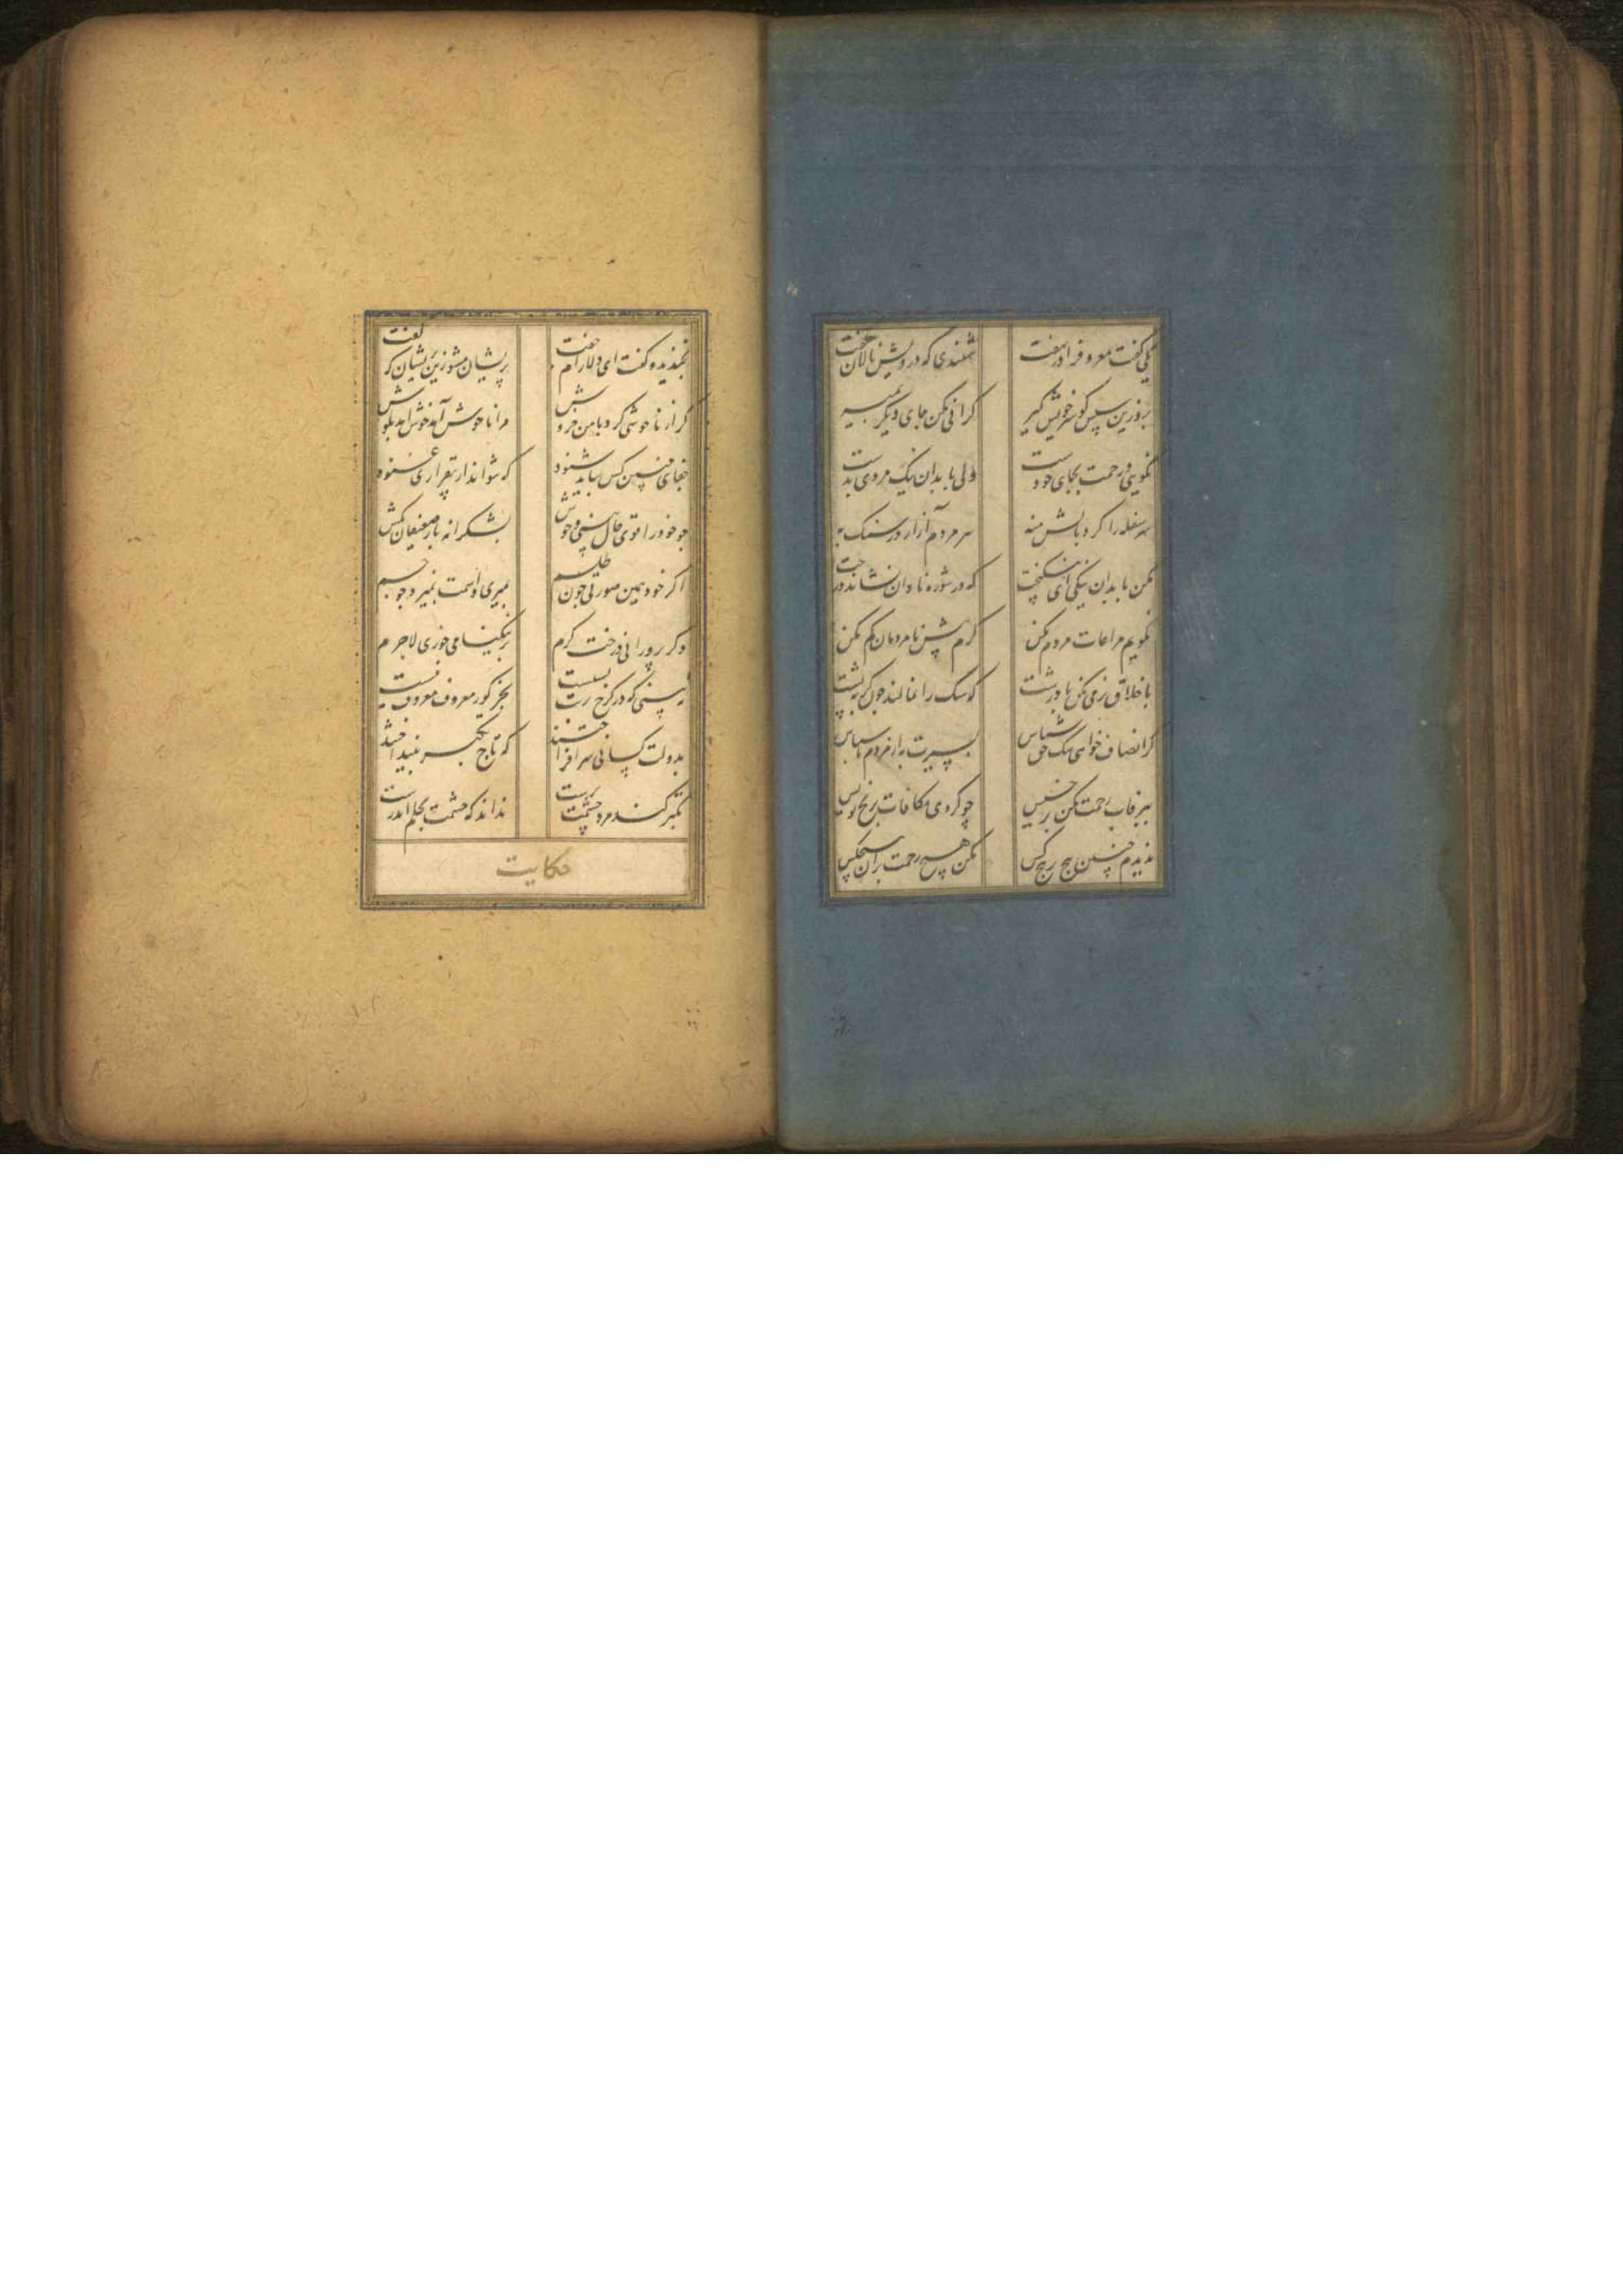 یکی گفت معروف را در نهفت شنیدی که درویش نالان چه گفت
برو زین سپس گو سر خویش گیر گرانی مکن جای دیگر بمیر
نکویی و رحمت بجای خودست ولی با بدان نیک مردی بدست
سر سفله را گرد بالش منه سر مردم آزار در سنگ به
مکن با بدان نیکی ای نیکبخت که در شوره نادان نشاند درخت
نگویم مراعات مردم مکن کرم پیش نامردمان گم مکن
باخلاق نرمی مکن با درشت که سگ را نمالند چون گربه پشت
گر انصاف خواهی سگ حق شناس بسیرت به از مردم ناسپاس
ببرفاب رحمت مکن بر خسیس چو کردی مکافات بر یخ نویس
ندیدم چنین پیچ بر پیچ کس مکن هیچ رحمت بر آن هیچکس
بخندید و گفت ای دلارام جفت پریشان مشو زین پریشان که گفت
گر از ناخوشی کرد با من خروش مرا ناخوش آمد خوش آمد بگوش
جفای چنین کس بباید شنود که نتواند از بیقراری غنود
چو خود را قوی حال بینی و خوش بشکرانه بار ضعیفان بکش
اگر خود همین صورتی چون طلسم بمیری و اسمت بمیرد چو جسم
وگر پرورانی درخت کرم بر نیکنامی خوری لاجرم
نبینی که در کرخ تربت بسیست بجز گور معروف معروف نیست
بدولت کسانی سر افراختند که تاج تکبر بینداختند
تکبر کند مرد حشمت پرست نداند که حشمت بحلم اندرست
حکایت